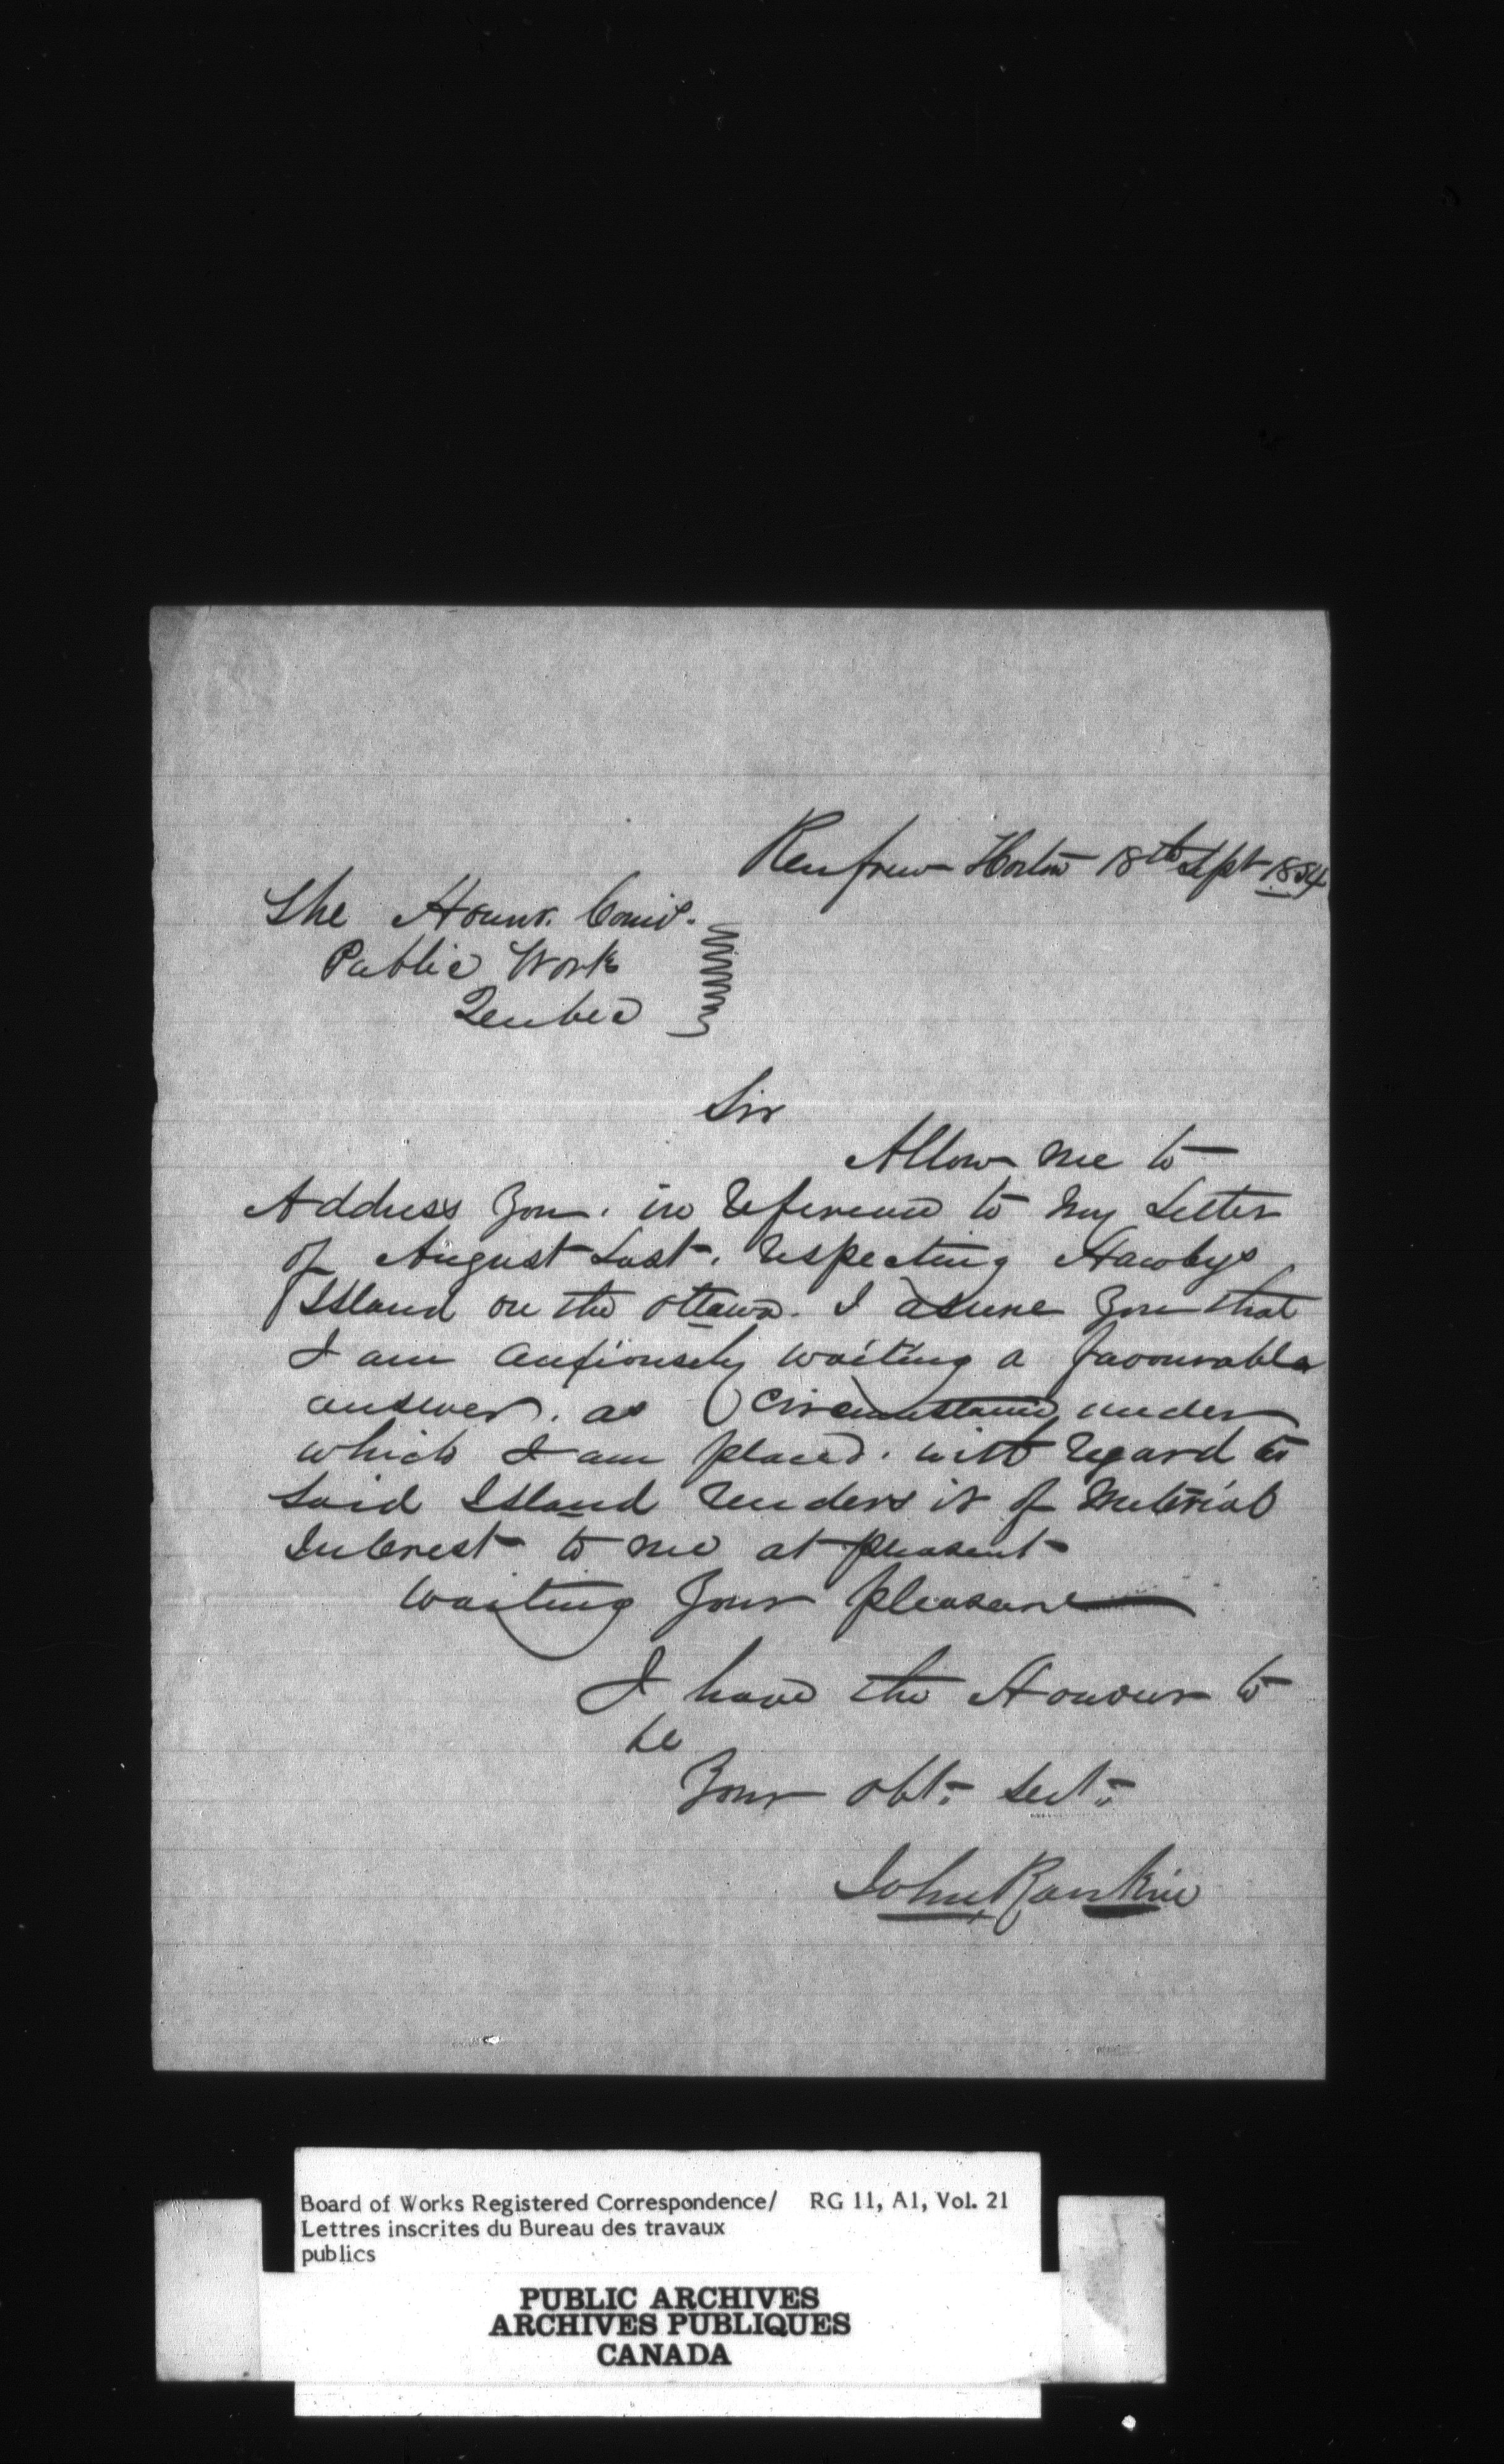 Renfrew Horton 18th Sept 1854
The Honr. Comr.
Public Work
Quebec
Sir
Allow me to
Address you. in reference to my Letter
of August Last. respecting Hawleys
Island on the Ottawa. I asure you that
I am anxiously waiting a favourable
answer. as Circumstance under
which I am placed. with regard to
Said Island renders it of Material
Interest to me at pleasent
Waiting your pleasure
I have the Honour to
be
Your obt. Sert.
John Rankin
Board of Works Registered Correspondence/ RG 11, A1, Vol. 21
Lettres inscrites du Bureau des travaux
publics
PUBLIC ARCHIVES
ARCHIVES PUBLIQUES
CANADA